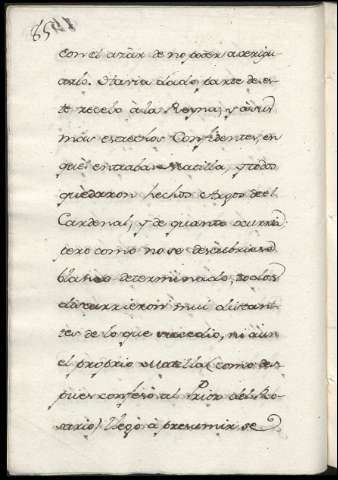 85
con el azar de no poder averigu-
arlo. Havia dado parte de es-
te recelo à la Reyna, y à sus
màs estrechos Confidentes, en
què entraba Matilla, y todos
quedaron hechos Argos del
Cardenal, y de quanto ocurria
pero como no se descubria
blanco determinado, todos
discurrieron mui distan-
tes de lo que sucedio, ni àun
el proprio Matilla (como des-
pues confesò al Prior del Ro-
sario) llegò à presumir se